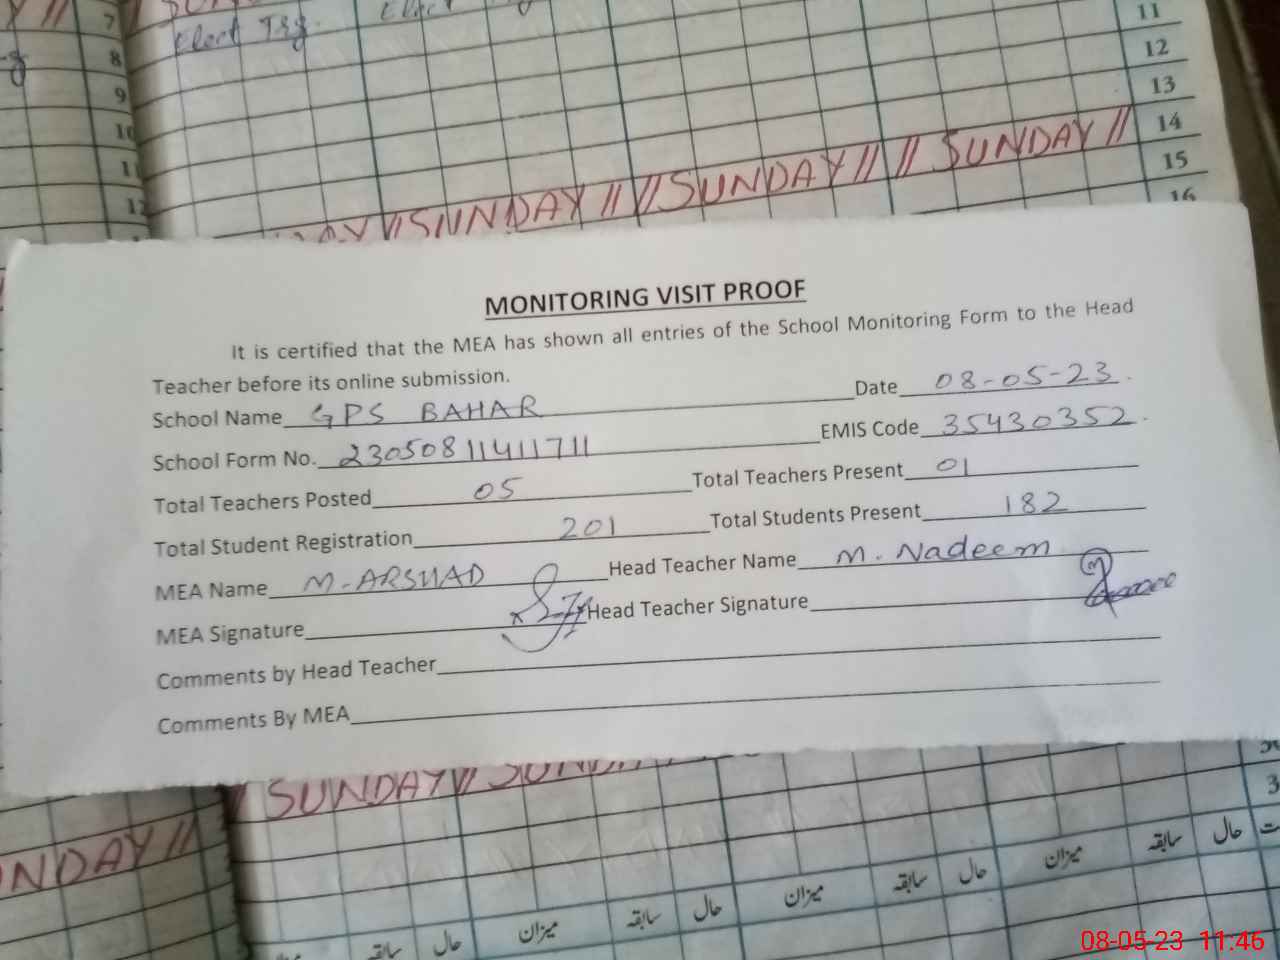 7
8
9
10
11
12
Elect Trg
11
12
13
14
15
16
// SUNDAY // // SUNDAY // // SUNDAY //
MONITORING VISIT PROOF
It is certified that the MEA has shown all entries of the School Monitoring Form to the Head
Teacher before its online submission.
School Name GPS BAHAR Date 08-05-23.
School Form No. 23050811411711 EMIS Code 35430352.
Total Teachers Posted 05 Total Teachers Present 01
Total Student Registration 201 Total Students Present 182
MEA Name M. ARSHAD Head Teacher Name M. Nadeem
MEA Signature Head Teacher Signature
Comments by Head Teacher
Comments By MEA
SUNDAY // SUNDAY
NDAY //
حال سابقہ میزان حال سابقہ میزان حال سابقہ میزان حال سابقہ
08-05-23 11.46